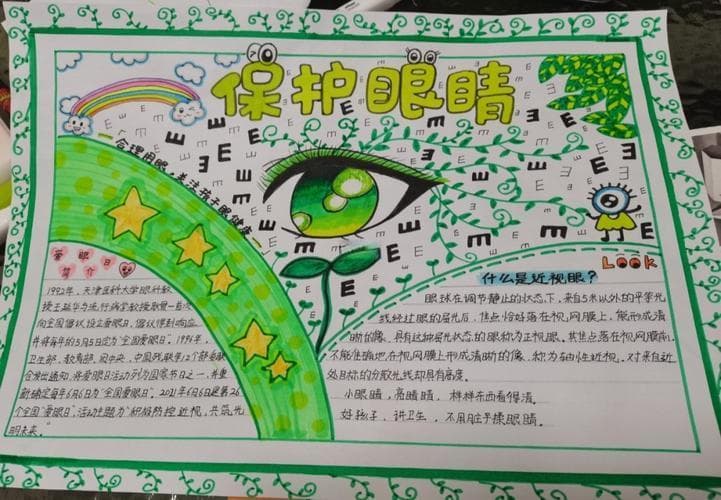 保护眼睛
合理用眼,关注孩子眼健康
爱眼日
简介
什么是近视眼?
Look
1992年,天津医科大学眼科教
授王延华与流行病学教授耿贯一首次
向全国倡议,设立爱眼日,倡议得到响应,
并将每年的5月5日定为"全国爱眼日"。1996年,
卫生部、教育部、团中央、中国残联等12个部委联
合发出通知,将爱眼日活动列为国家节日之一,并重
新确定每年6月6日为"全国爱眼日"。2021年6月6日是第26
个全国"爱眼日",活动主题为"积极防控近视,共筑光
明未来。"
眼球在调节静止的状态下,来自5米以外的平等光
线经过眼的屈光后,焦点恰好落在视网膜上,能形成清
晰的像,具有这种屈光状态的眼称为正视眼,其焦点落在视网膜前,
不能准确地在视网膜上形成清晰的像,称为轴性近视。对来自近
处目标的分散光线却具有高度。
小眼睛,亮晴晴,样样东西看得清。
好孩子,讲卫生,不用脏手揉眼睛。